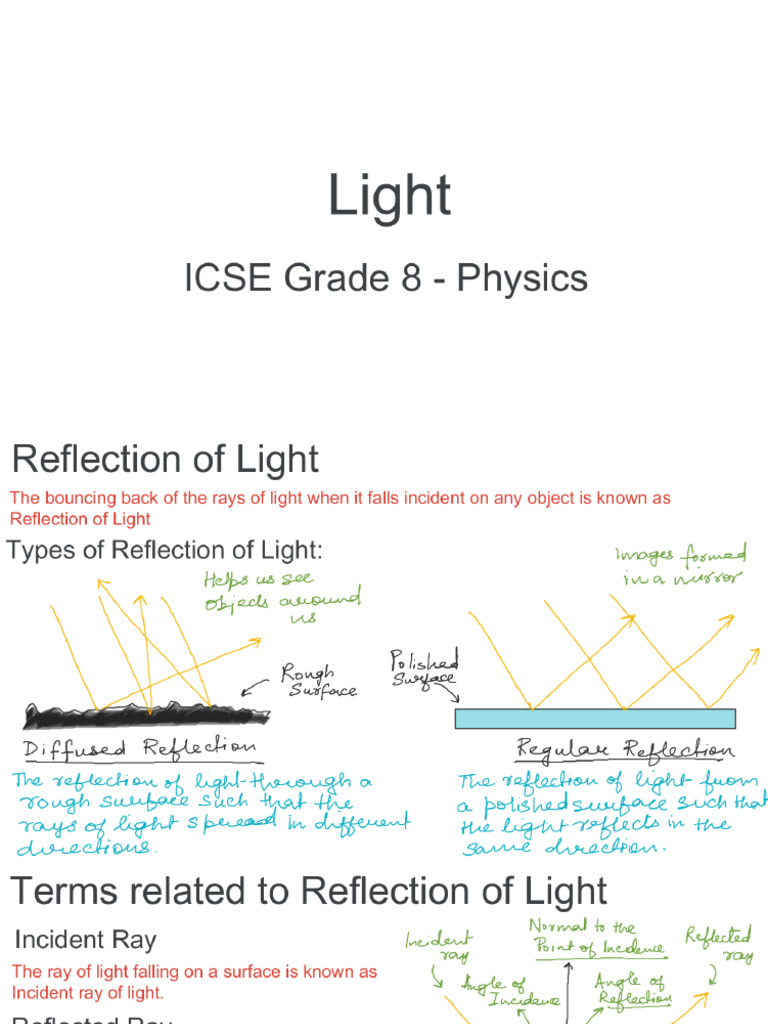 Light
ICSE Grade 8 - Physics
Reflection of Light
The bouncing back of the rays of light when it falls incident on any object is known as
Reflection of Light
Types of Reflection of Light:
Helps us see
objects around
us
Images formed
in a mirror
Rough
Surface
Polished
Surface
Diffused Reflection
The reflection of light through a
rough surface such that the
rays of light spread in different
directions.
Regular Reflection
The reflection of light from
a polished surface such that
the light reflects in the
same direction.
Terms related to Reflection of Light
Incident Ray
The ray of light falling on a surface is known as
Incident ray of light.
Reflected Ray
Incident
ray
Normal to the
Point of Incidence
Reflected
ray
Angle of
Incidence
Angle of
Reflection